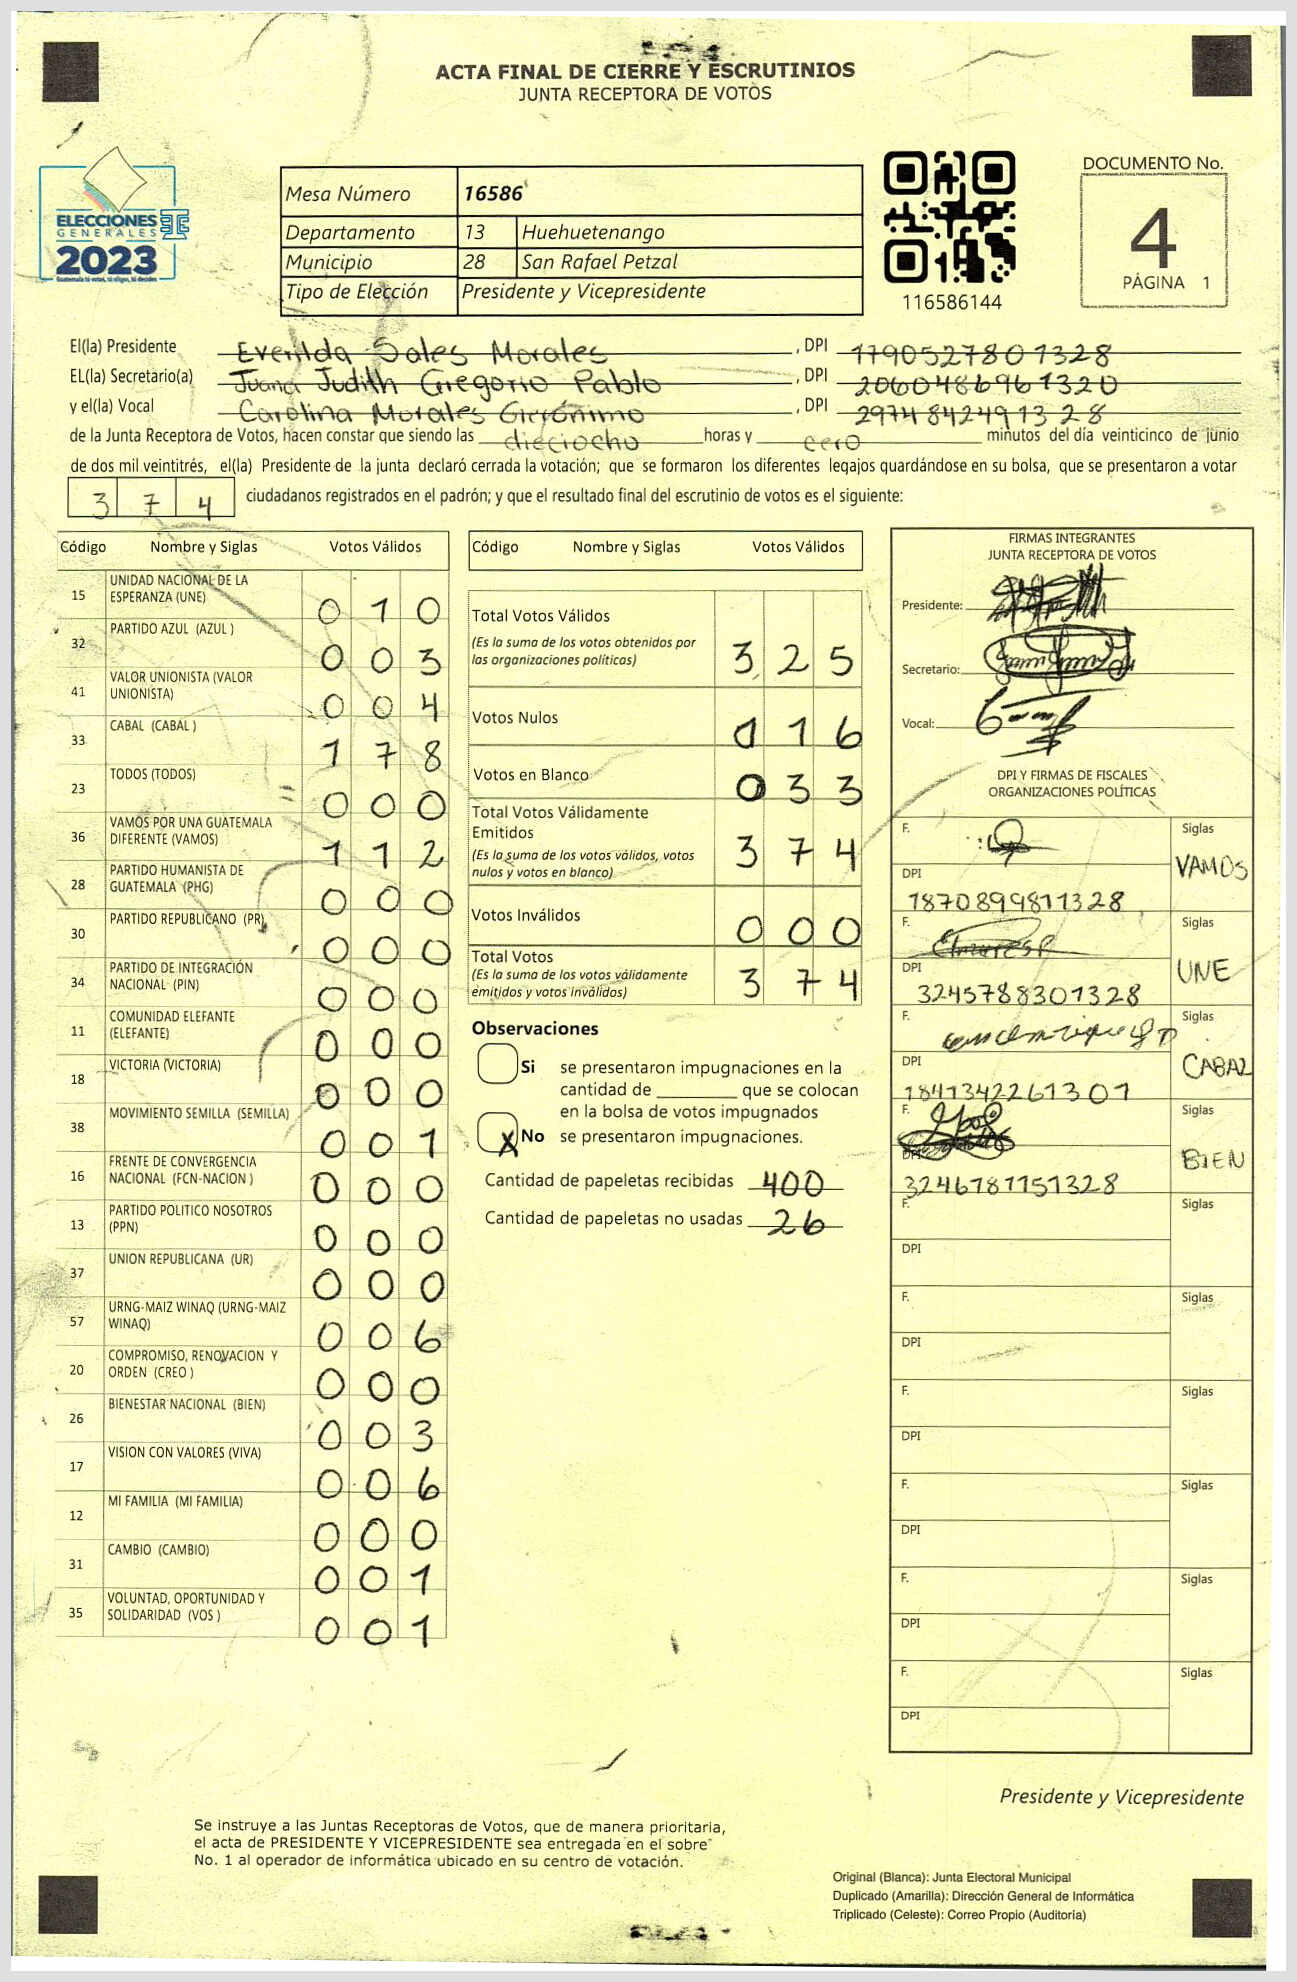 ACTA FINAL DE CIERRE Y ESCRUTINIOS
JUNTA RECEPTORA DE VOTOS
ELECCIONES
GENERALES
2023
Mesa Número 16586
Departamento 13 Huehuetenango
Municipio 28 San Rafael Petzal
Tipo de Elección Presidente y Vicepresidente
116586144
DOCUMENTO No.
4
PÁGINA 1
El(la) Presidente Everilda Sales Morales, DPI 1790527801328
EL(la) Secretario(a) Juana Judith Gregorio Pablo, DPI 2060486961320
y el(la) Vocal Carolina Morales Gierónimo, DPI 2974842491328
de la Junta Receptora de Votos, hacen constar que siendo las dieciocho horas y cero minutos del día veinticinco de junio
de dos mil veintitrés, el(la) Presidente de la junta declaró cerrada la votación; que se formaron los diferentes legajos guardándose en su bolsa, que se presentaron a votar
3 7 4 ciudadanos registrados en el padrón; y que el resultado final del escrutinio de votos es el siguiente:
Código Nombre y Siglas Votos Válidos
15 UNIDAD NACIONAL DE LA
ESPERANZA (UNE) 0 1 0
32 PARTIDO AZUL (AZUL ) 0 0 3
41 VALOR UNIONISTA (VALOR
UNIONISTA) 0 0 4
33 CABAL (CABAL ) 1 7 8
23 TODOS (TODOS) 0 0 0
36 VAMOS POR UNA GUATEMALA
DIFERENTE (VAMOS) 1 1 2
28 PARTIDO HUMANISTA DE
GUATEMALA (PHG) 0 0 0
30 PARTIDO REPUBLICANO (PR) 0 0 0
34 PARTIDO DE INTEGRACIÓN
NACIONAL (PIN) 0 0 0
11 COMUNIDAD ELEFANTE
(ELEFANTE) 0 0 0
18 VICTORIA (VICTORIA) 0 0 0
38 MOVIMIENTO SEMILLA (SEMILLA) 0 0 1
16 FRENTE DE CONVERGENCIA
NACIONAL (FCN-NACION ) 0 0 0
13 PARTIDO POLITICO NOSOTROS
(PPN) 0 0 0
37 UNION REPUBLICANA (UR) 0 0 0
57 URNG-MAIZ WINAQ (URNG-MAIZ
WINAQ) 0 0 6
20 COMPROMISO, RENOVACION Y
ORDEN (CREO ) 0 0 0
26 BIENESTAR NACIONAL (BIEN) 0 0 3
17 VISION CON VALORES (VIVA) 0 0 6
12 MI FAMILIA (MI FAMILIA) 0 0 0
31 CAMBIO (CAMBIO) 0 0 1
35 VOLUNTAD, OPORTUNIDAD Y
SOLIDARIDAD (VOS ) 0 0 1
Código Nombre y Siglas Votos Válidos
Total Votos Válidos
(Es la suma de los votos obtenidos por
las organizaciones políticas) 3 2 5
Votos Nulos 0 1 6
Votos en Blanco 0 3 3
Total Votos Válidamente
Emitidos
(Es la suma de los votos válidos, votos
nulos y votos en blanco) 3 7 4
Votos Inválidos 0 0 0
Total Votos
(Es la suma de los votos válidamente
emitidos y votos inválidos) 3 7 4
Observaciones
Si se presentaron impugnaciones en la
cantidad de ________ que se colocan
en la bolsa de votos impugnados
X No se presentaron impugnaciones.
Cantidad de papeletas recibidas 400
Cantidad de papeletas no usadas 26
FIRMAS INTEGRANTES
JUNTA RECEPTORA DE VOTOS
Presidente:
Secretario:
Vocal:
DPI Y FIRMAS DE FISCALES
ORGANIZACIONES POLÍTICAS
F. Siglas
VAMOS
DPI
1870899811328
F. Siglas
UNE
DPI
3245788301328
F. Siglas
CABAL
DPI
1841342261301
F. Siglas
BIEN
DPI
3246781151328
F. Siglas
DPI
F. Siglas
DPI
F. Siglas
DPI
F. Siglas
DPI
F. Siglas
DPI
F. Siglas
DPI
Presidente y Vicepresidente
Se instruye a las Juntas Receptoras de Votos, que de manera prioritaria,
el acta de PRESIDENTE Y VICEPRESIDENTE sea entregada en el sobre
No. 1 al operador de informática ubicado en su centro de votación.
Original (Blanca): Junta Electoral Municipal
Duplicado (Amarilla): Dirección General de Informática
Triplicado (Celeste): Correo Propio (Auditoría)